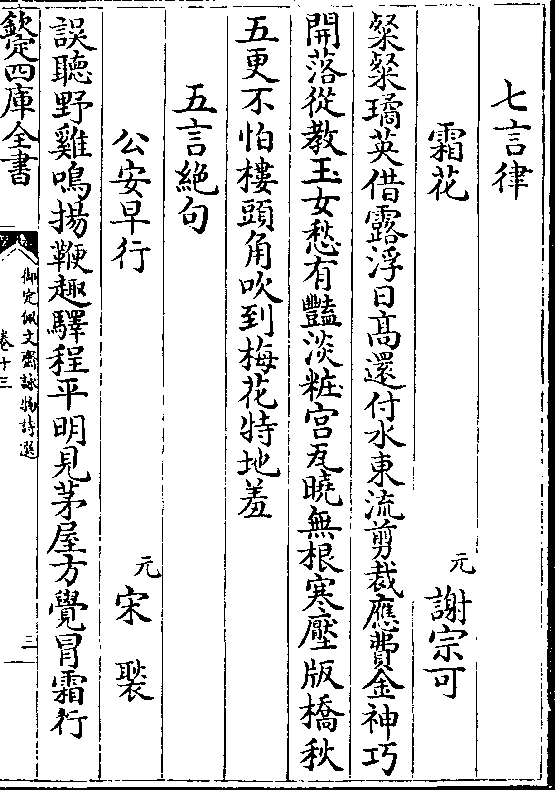 七言律
霜花　元　謝宗可
粲粲璚英借露浮日高還付水東流剪裁應費金神巧
開落從教玉女愁有豔淡粧宫瓦曉無根寒壓版橋秋
五更不怕樓頭角吹到梅花特地羞
五言絶句
公安早行　元　宋褧
誤聽野雞鳴揚鞭趣驛程平明見茅屋方覺冒霜行
欽定四庫全書
御定佩文齋詠物詩選
卷十三
三